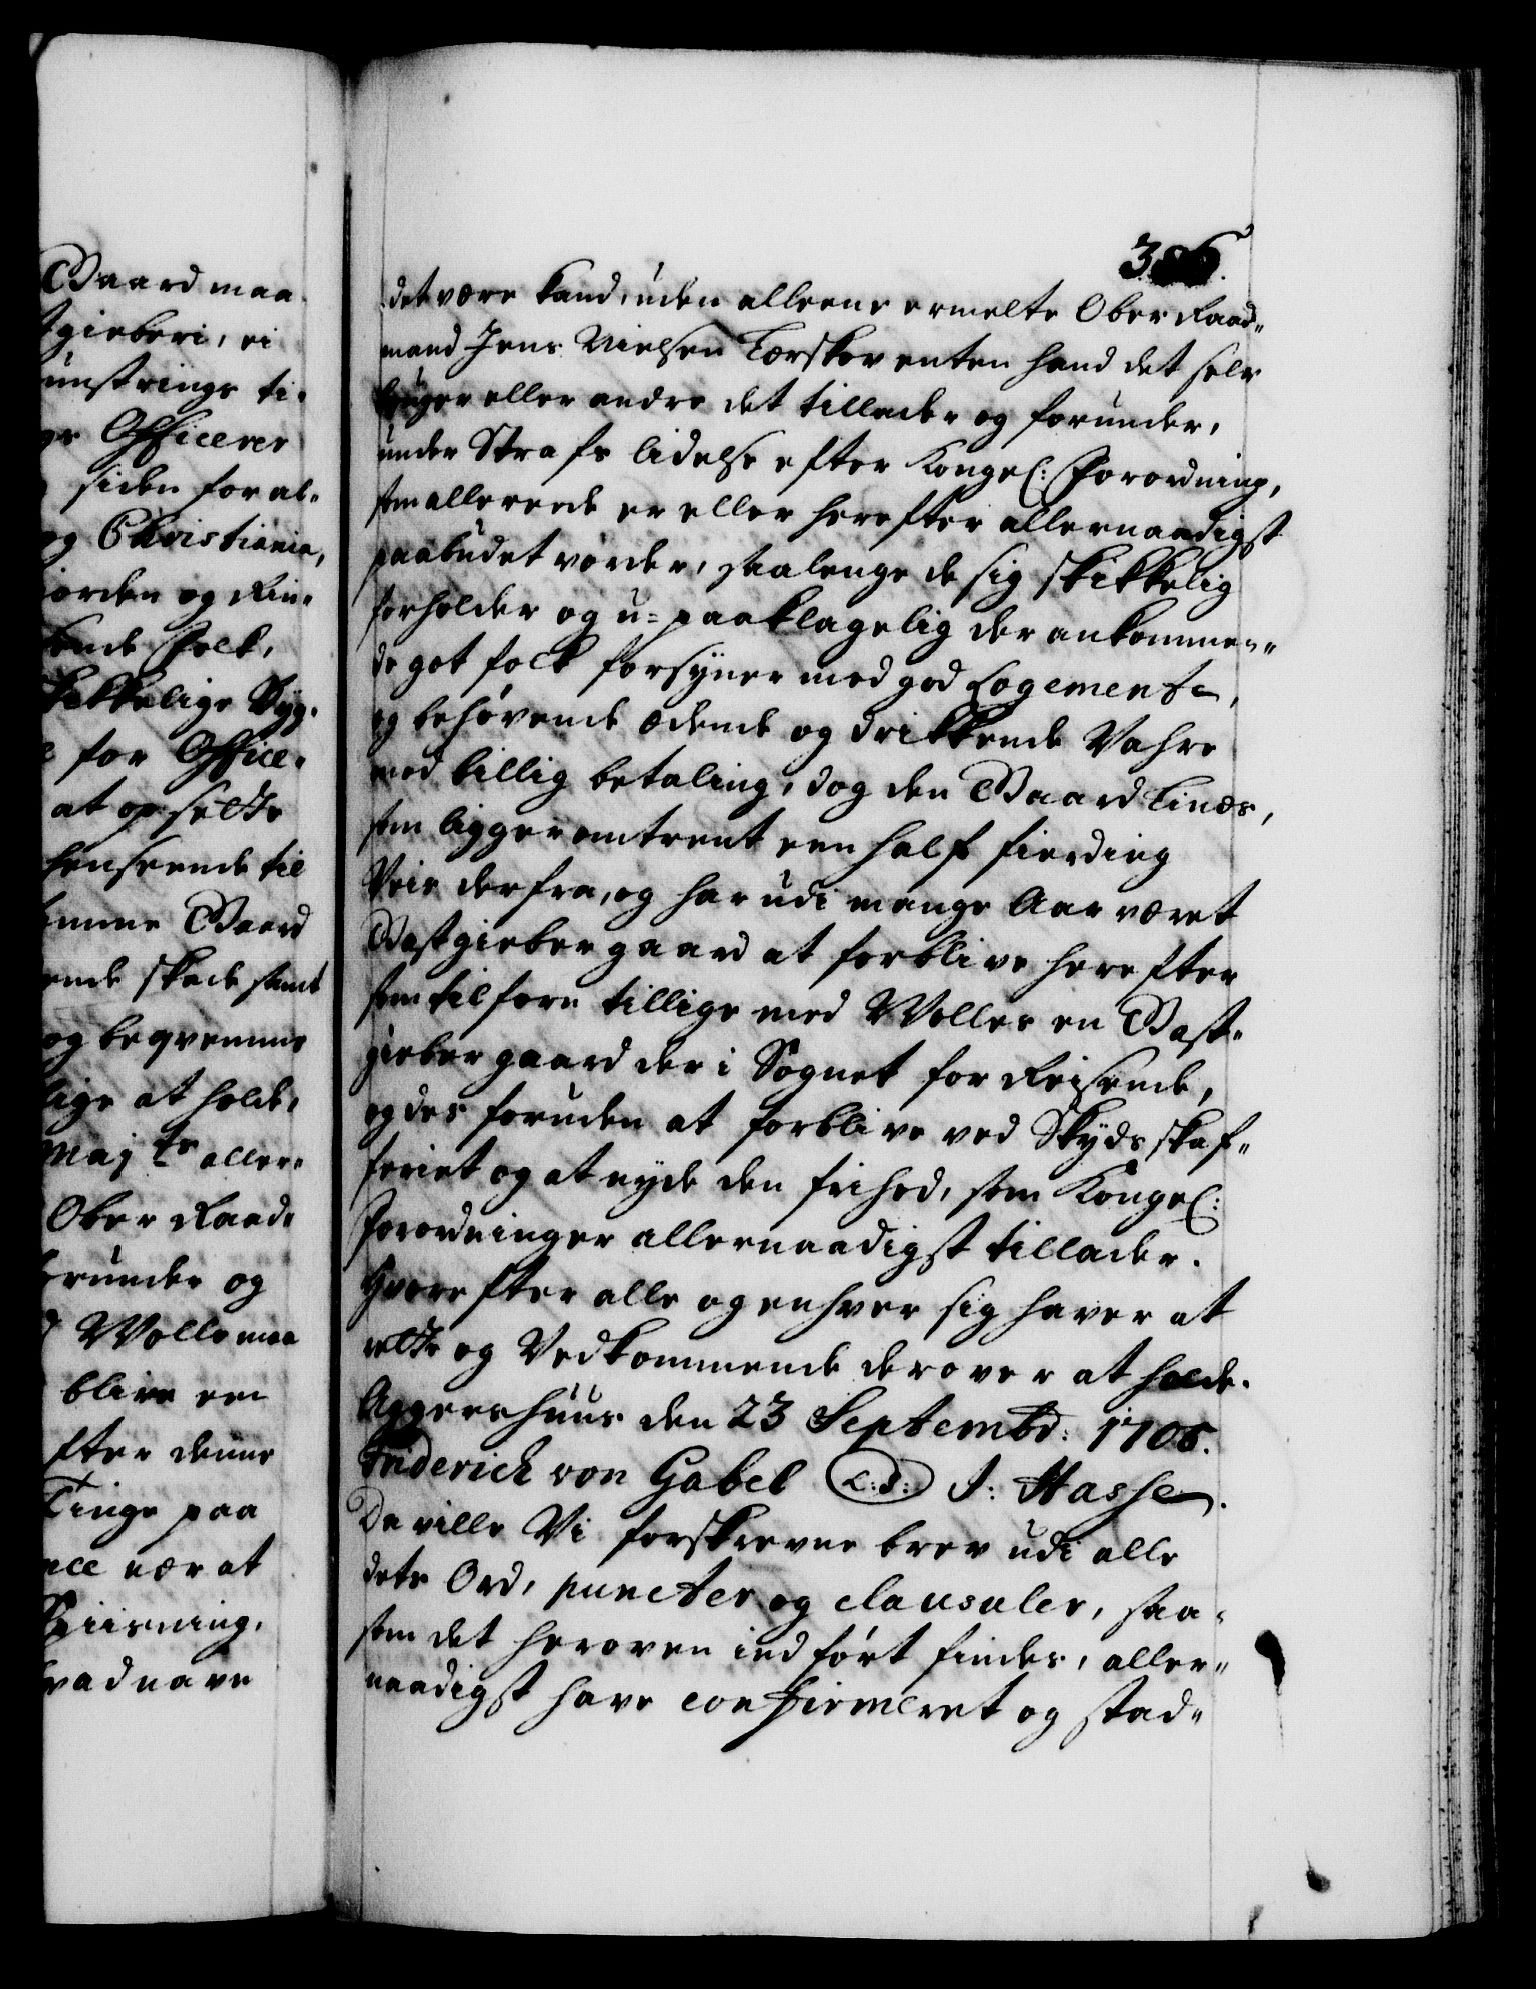 Gaard maa
tgieberi, ei
unstrings ti-
ge Officerer
siden for al-
og Christiania,
orden og Rin-
kende Folk,
kikkelige Byg-
for Office-
at opsette
henseende til
denne Gaard
ende skade samt
og beqvemme
lige at holde,
Maj.ts aller-
Ober Raad-
runder og
Wolle maa
blive een
fter denne
Tinge paa
nce nær at
Spiisning,
vad navn
386.
det være kand, uden alleene ermelte Ober Raad-
mand Jens Nielsen Torskov enten hand det selv
bruger eller andre det tillader og forunder,
under Strafs lidelse efter Kongel: Forordning,
som allerede er eller herefter allernaadigst
paabudet vorder, saalenge de sig skikkelig
forholder og u-paaklagelig der ankommen-
de got folk forsyner med god Logemente,
og behøvende ædende og drikkende Vahre
med billig betaling, dog den Gaard Linæs,
som ligger omtrent een half fierding
Veie derfra, og har udi mange Aar været
Gastgiebergaard at forblive herefter
som tilforn tillige med Wolles en Gast-
giebergaard der i Sognet for Reisende,
og des foruden at forblive ved Skyds skaf-
feriet og at nyde den frihed, som Kongel:
Forordninger allernaadigst tillader.
Hvorefter alle og enhver sig haver at
rette og Vedkommende derover at holde.
Aggershuus den 23 Septembr: 1706.
Friderich von Gabel (L:S:) J: Hasse.
Da ville Vi forskrevne brev udi alle
dets Ord, puncter og clausuler, saa-
som det heroven indført findes, aller-
naadigst have confirmeret og stad-